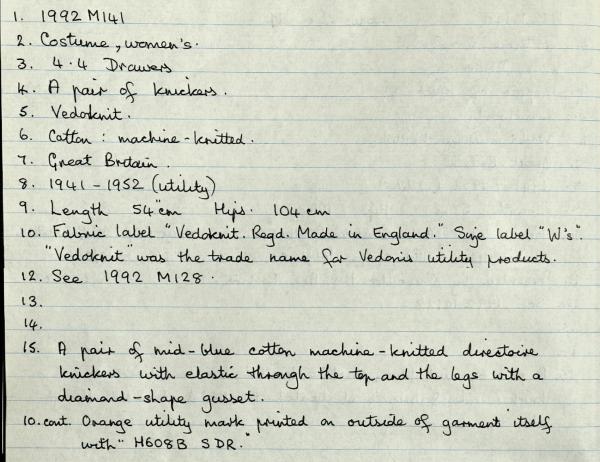 1. 1992 M141
2. Costume, women's.
3. 4.4 Drawers
4. A pair of knickers.
5. Vedoknit.
6. Cotton: machine-knitted.
7. Great Britain.
8. 1941-1952 (utility)
9. Length 54"cm Hips. 104 cm
10. Fabric label "Vedoknit. Regd. Made in England." Size label "W's".
"Vedoknit" was the trade name for Vedonis utility products.
12. See 1992 M128.
13.
14.
15. A pair of mid-blue cotton machine-knitted directoire
knickers with elastic through the top and the legs with a
diamond-shape gusset.
10.cont. Orange utility mark printed on outside of garment itself
with "H608B SDR."